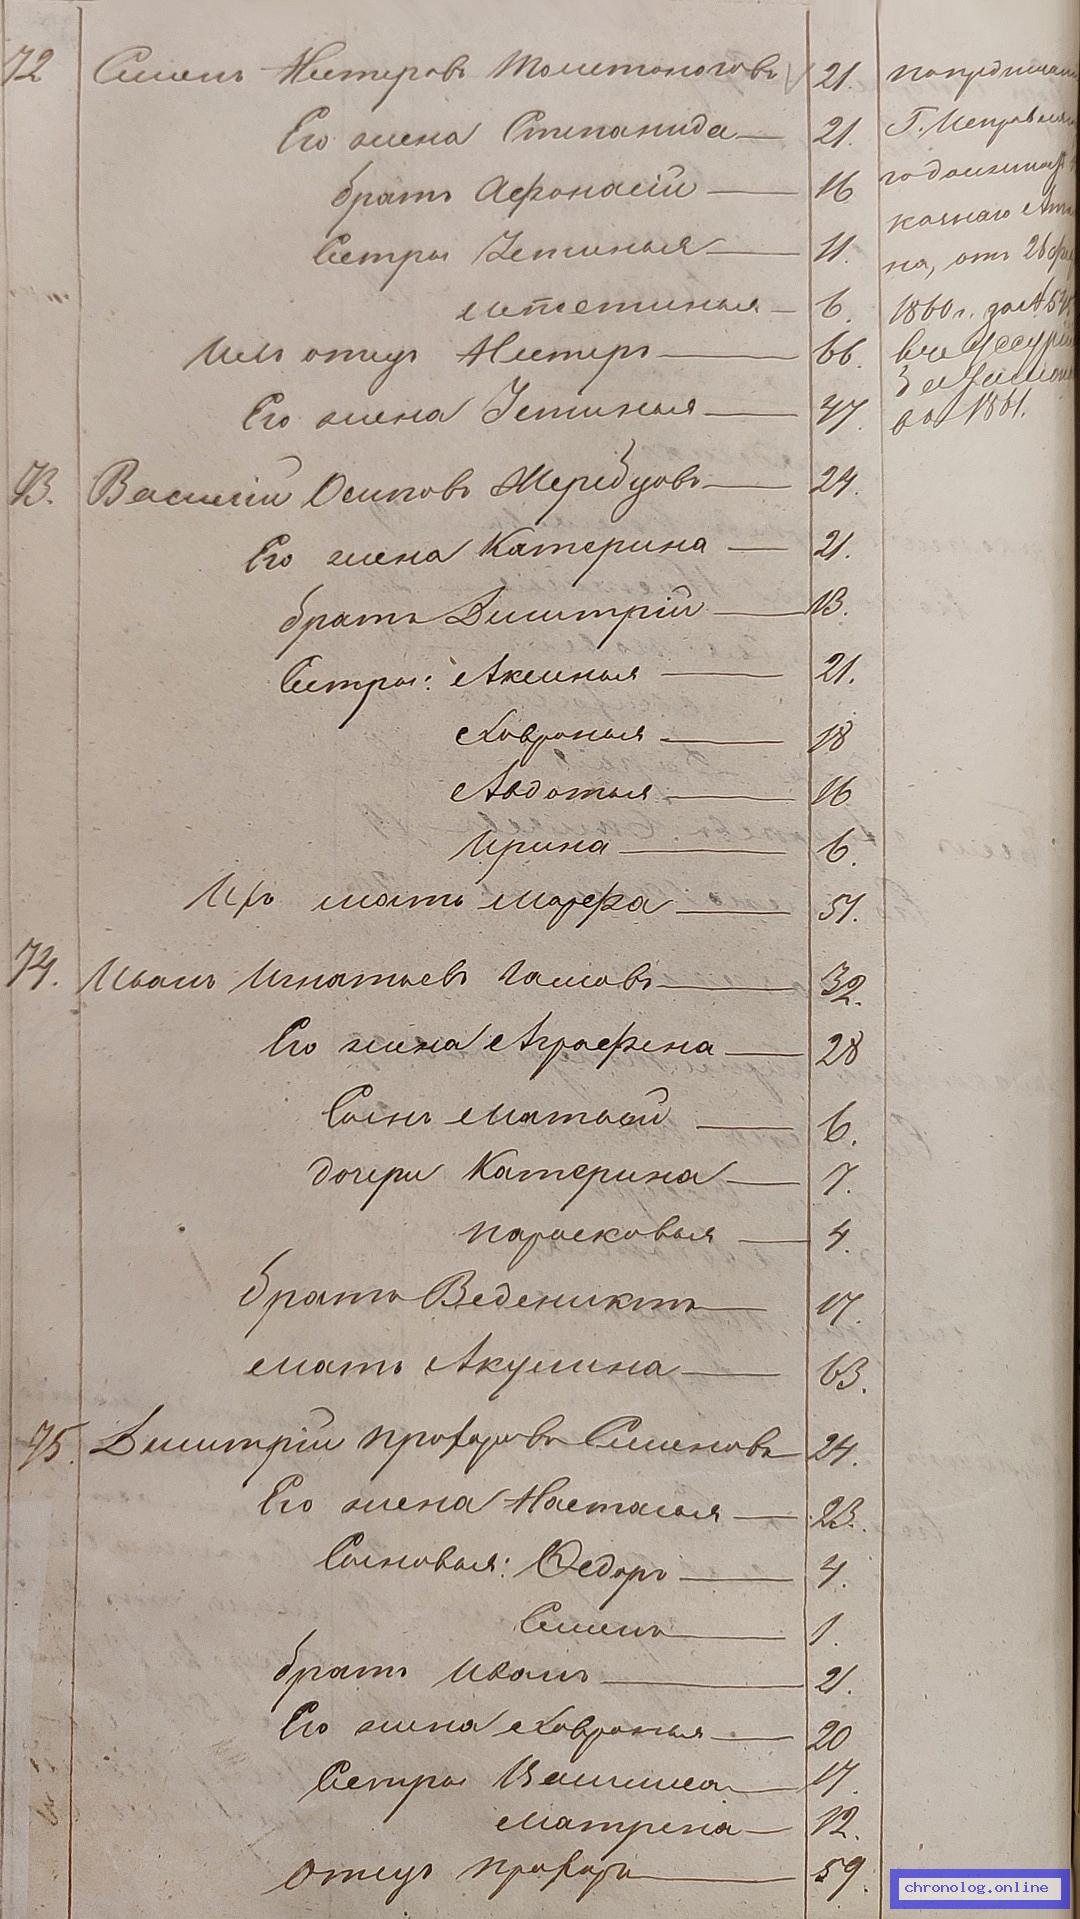 72 Семенъ Нестеровъ Толстоноговъ 21. по предписанію
Его жена Степанида 21. Г. Исправляю
братъ Афонасій 16
Сестры Устинья 11.
6. 1860 г. за №
Ихъ отецъ Нестеръ 66.
Его жена Устинья 47. 1861.
73. Василій Осиповъ Жеребцовъ 24.
Его жена Катерина 21.
братъ Димитрій 13.
Сестры: Аксинья 21.
Ховронья 18
Авдотья 16
Ирина 6.
Ихъ мать Марфа 51.
74. Иванъ Игнатьевъ Гамовъ 32.
Его жена Аграфена 28
Сынъ Матвей 6.
дочери Катерина 7.
Парасковья 4.
братъ Ведениктъ 17.
мать Акулина 63.
75. Димитрій Прохоровъ Семеновъ 24.
Его жена Настасья 23.
Сыновья: Федоръ 4.
Семенъ 1.
братъ Иванъ 21.
Его жена Ховронья 20
Сестры Василиса 17.
Матрена 12.
отецъ Прохоръ 59.
chronolog.online